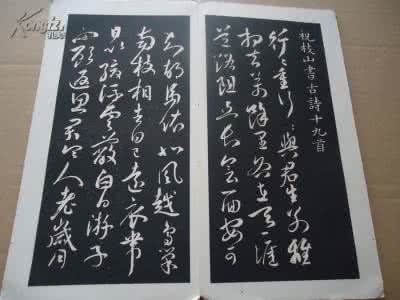 祝枝山書古詩十九首
行〻重行〻與君生別離
相去萬餘里各在天一涯
道路阻且長會面安可
知胡馬依北風越鳥巢
南枝相去日已遠衣帶
日緩浮雲蔽白日游子
不顧返思君令人老歲月